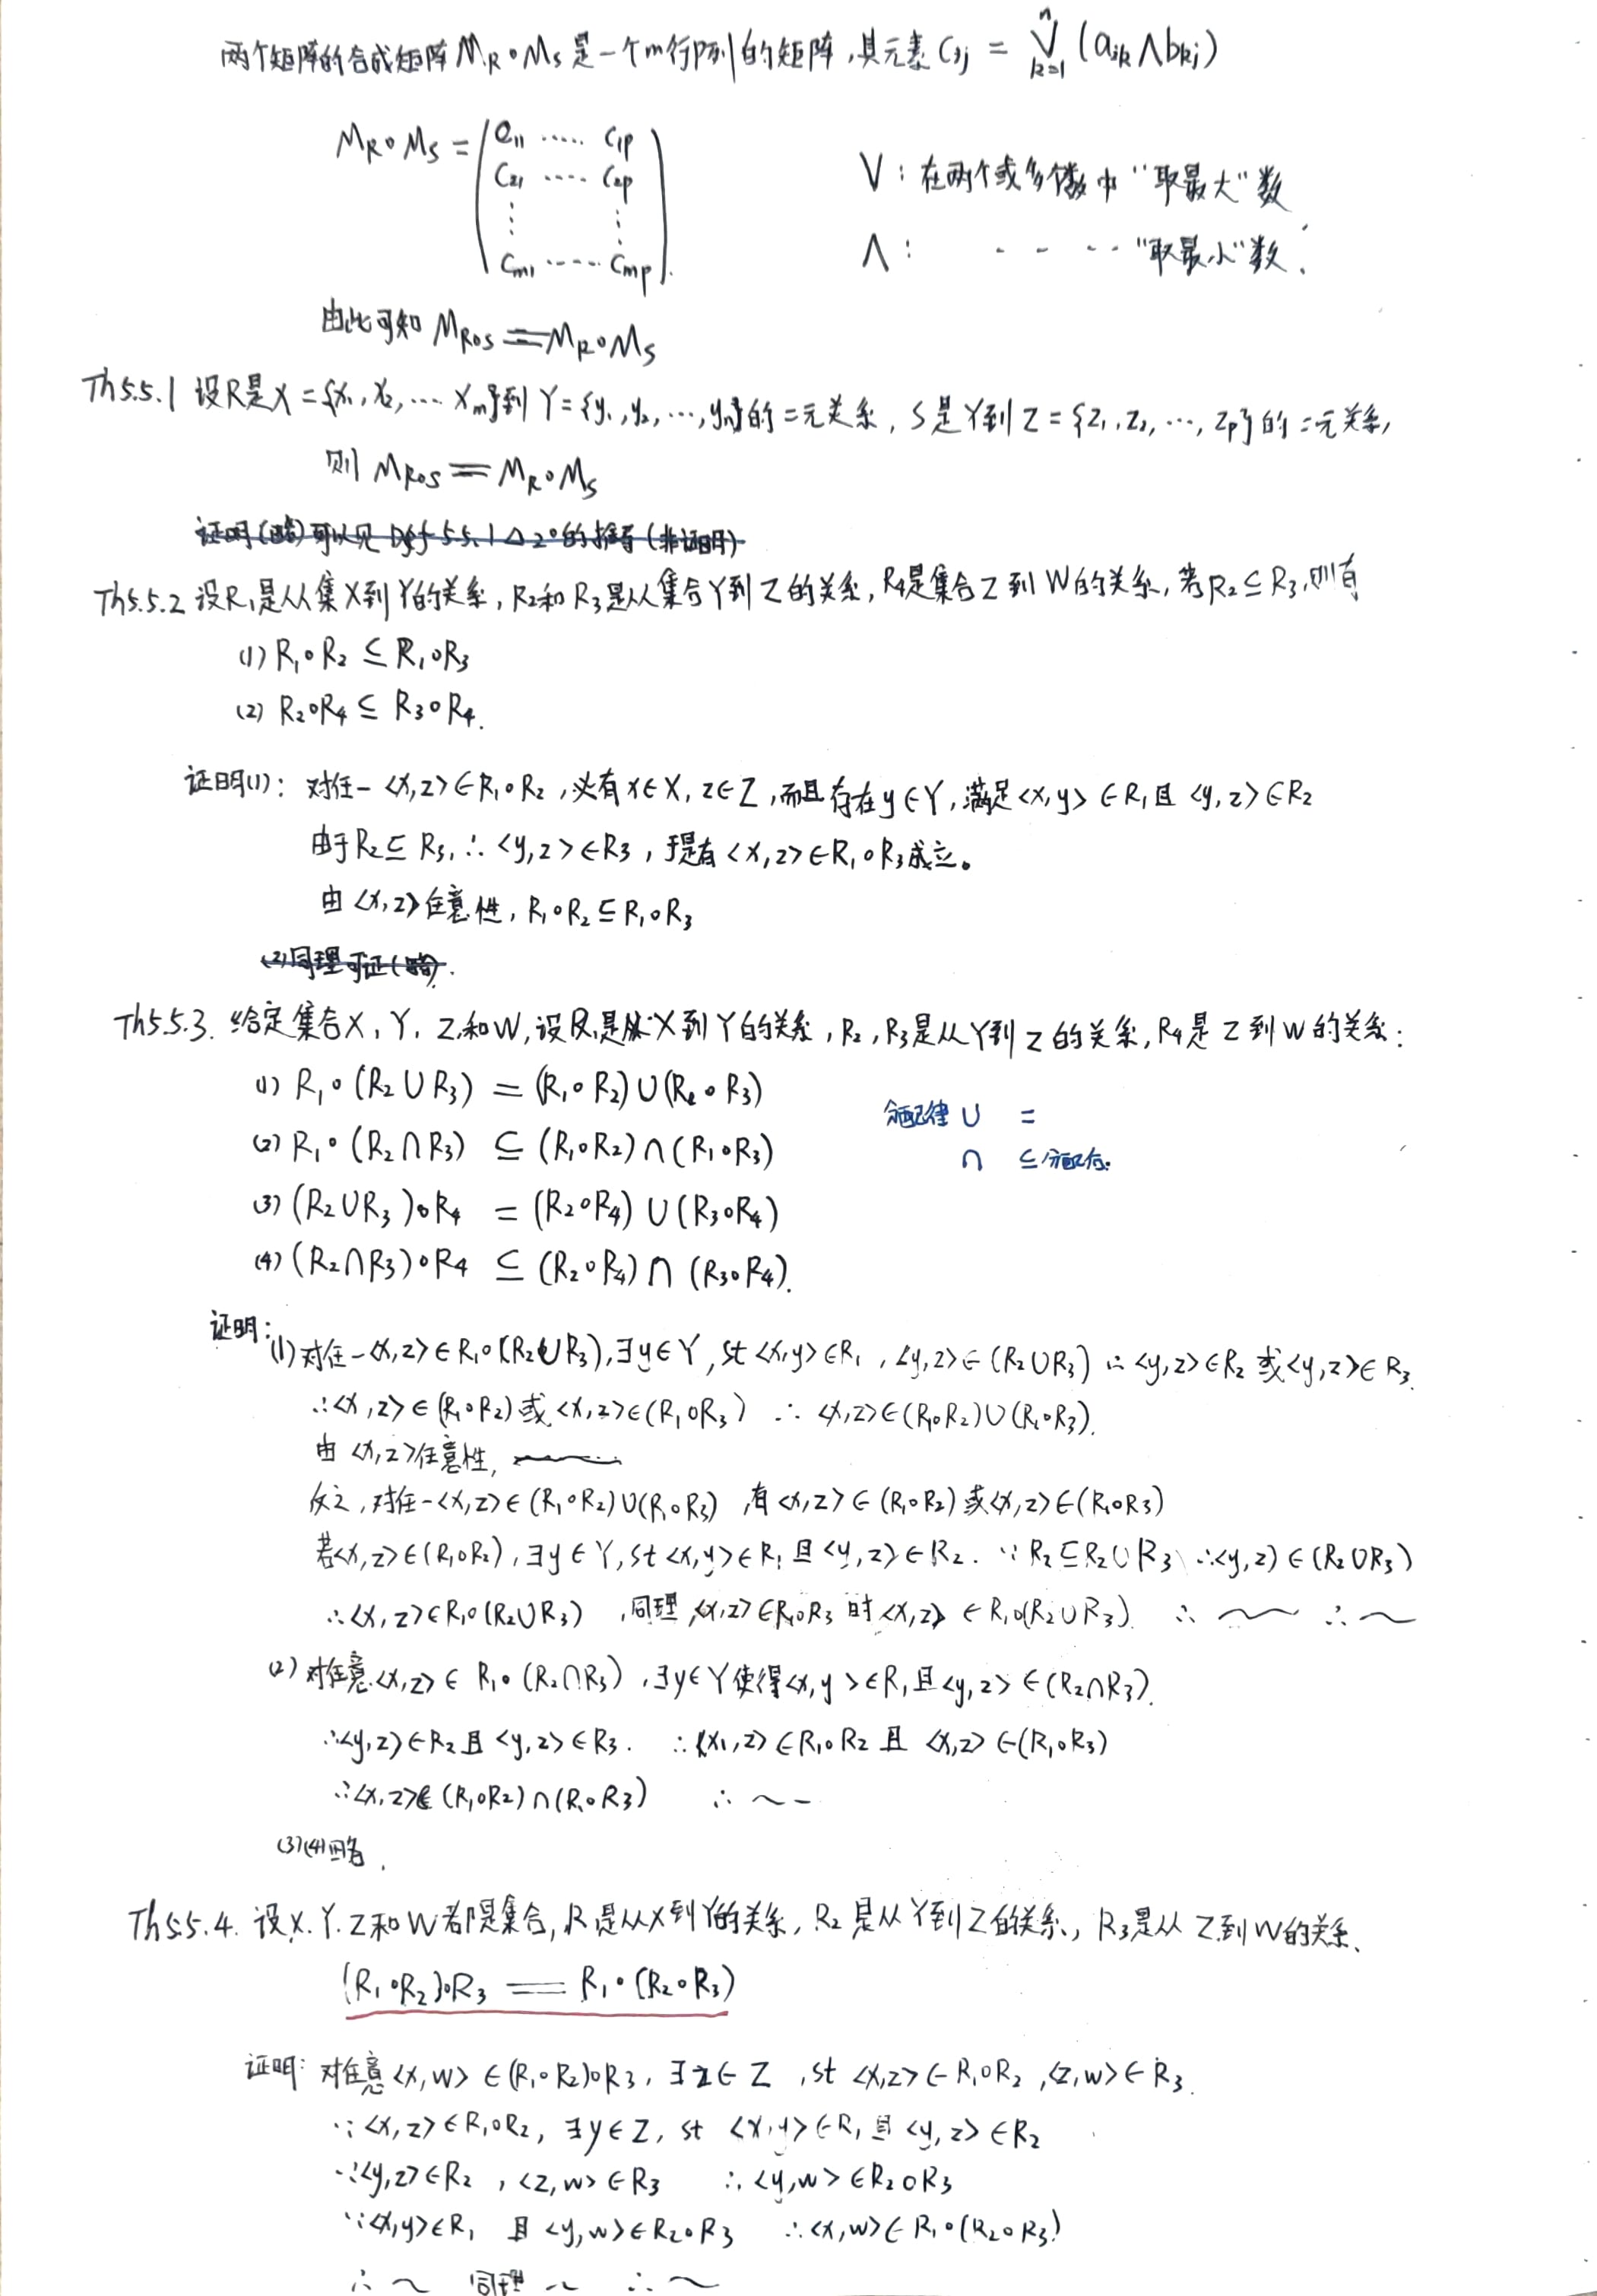 两个矩阵的合成矩阵 M_R∘M_S 是一个m行p列的矩阵,其元素 C_ij = ⋁_{k=1}^{n} (a_ik ∧ b_kj)
M_R∘M_S = ( C_11 ····· C_1p
C_21 ···· C_2p
⋮ ⋮
C_m1 ······ C_mp ).
∨:在两个或多个数中“取最大”数
∧: - - - -- “取最小”数.
由此可知 M_R∘S = M_R∘M_S
Th5.5.1 设R是X={x_1, x_2, ··· x_m}到Y={y_1, y_2, ···, y_n}的二元关系, S是Y到Z={z_1, z_2, ···, z_p}的二元关系,
则 M_R∘S = M_R∘M_S
证明(略)可以见Def 5.5.1 △ 2°的推导(非证明)
Th5.5.2 设R_1是从集X到Y的关系, R_2和R_3是从集合Y到Z的关系, R_4是集合Z到W的关系, 若R_2⊆R_3,则有
(1) R_1∘R_2 ⊆ R_1∘R_3
(2) R_2∘R_4 ⊆ R_3∘R_4.
证明(1): 对任一<x,z>∈R_1∘R_2,必有x∈X, z∈Z,而且存在y∈Y,满足<x,y>∈R_1且<y,z>∈R_2
由于R_2⊆R_3, ∴<y,z>∈R_3, 于是有<x,z>∈R_1∘R_3成立。
由<x,z>任意性, R_1∘R_2⊆R_1∘R_3
(2)同理可证(略).
Th5.5.3. 给定集合X, Y, Z,和W,设R_1是从X到Y的关系, R_2, R_3是从Y到Z的关系, R_4是Z到W的关系:
(1) R_1∘(R_2∪R_3) = (R_1∘R_2)∪(R_1∘R_3)
(2) R_1∘(R_2∩R_3) ⊆ (R_1∘R_2)∩(R_1∘R_3)
(3) (R_2∪R_3)∘R_4 = (R_2∘R_4)∪(R_3∘R_4)
(4) (R_2∩R_3)∘R_4 ⊆ (R_2∘R_4)∩(R_3∘R_4).
分配律 ∪ =
∩ ⊆分配右.
证明:
(1) 对任一<x,z>∈R_1∘(R_2∪R_3), ∃y∈Y, st <x,y>∈R_1, <y,z>∈(R_2∪R_3) ∴<y,z>∈R_2或<y,z>∈R_3.
∴<x,z>∈(R_1∘R_2)或<x,z>∈(R_1∘R_3) ∴ <x,z>∈(R_1∘R_2)∪(R_1∘R_3).
由<x,z>任意性, ——
反之,对任一<x,z>∈(R_1∘R_2)∪(R_1∘R_3), 有<x,z>∈(R_1∘R_2)或<x,z>∈(R_1∘R_3)
若<x,z>∈(R_1∘R_2), ∃y∈Y, st <x,y>∈R_1且<y,z>∈R_2. ∵R_2⊆R_2∪R_3 ∴<y,z>∈(R_2∪R_3)
∴<x,z>∈R_1∘(R_2∪R_3) ,同理,<x,z>∈R_1∘R_3时<x,z>∈R_1∘(R_2∪R_3). ∴ ~ ∴ ~
(2) 对任意<x,z>∈R_1∘(R_2∩R_3), ∃y∈Y使得<x,y>∈R_1且<y,z>∈(R_2∩R_3).
∴<y,z>∈R_2且<y,z>∈R_3. ∴<x,z>∈R_1∘R_2且<x,z>∈(R_1∘R_3)
∴<x,z>∈(R_1∘R_2)∩(R_1∘R_3) ∴ ~ -
(3)(4)略.
Th5.5.4. 设X. Y. Z和W都是集合, R是从X到Y的关系, R_2是从Y到Z的关系, R_3是从Z到W的关系、
(R_1∘R_2)∘R_3 = R_1∘(R_2∘R_3)
证明: 对任意<x,w>∈(R_1∘R_2)∘R_3, ∃z∈Z, st <x,z>∈R_1∘R_2, <z,w>∈R_3.
∵<x,z>∈R_1∘R_2, ∃y∈Z, st <x,y>∈R_1且<y,z>∈R_2
∵<y,z>∈R_2, <z,w>∈R_3 ∴<y,w>∈R_2∘R_3
∵<x,y>∈R_1 且<y,w>∈R_2∘R_3 ∴<x,w>∈R_1∘(R_2∘R_3)
∴ ~ 同理 ~ ∴ ~